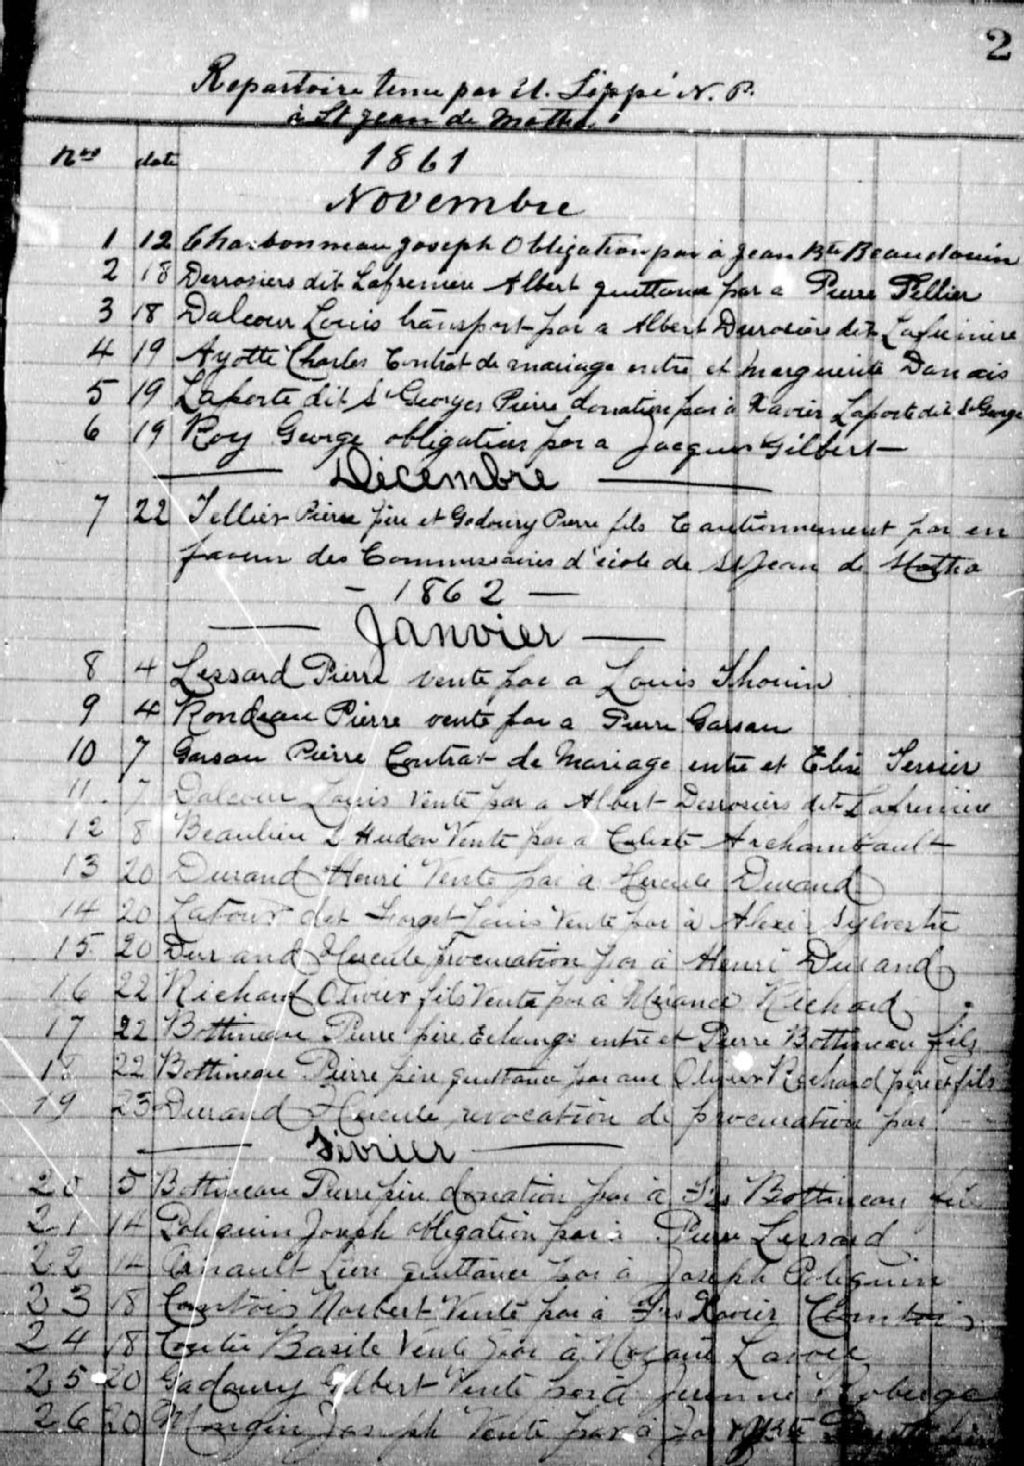 2
Repertoire tenu par U. Lippé N. P.
à St Jean de Matha
Nos date 1861
Novembre
1 12 Charbonneau Joseph Obligation par à Jean Bte Beaudouin
2 18 Derrosiers dit Lafreniere Albert quittance par a Pierre Tellier
3 18 Dalcour Louis transport par a Albert Durosiers dit Lafreiniere
4 19 Ayotte Charles Contrat de mariage entre et Marguerite Danais
5 19 Laporte dit St Georges Pierre donation par à Xavier Laporte dit St George
6 19 Roy George obligation par a Jacques Gilbert
Décembre
7 22 Tellier Pierre père et Gadoury Pierre fils Cautionnement par en
faveur des Commissaires d'école de St Jean de Matha
1862
Janvier
8 4 Lessard Pierre vente par a Louis Thouin
9 4 Rondeau Pierre vente par a Pierre Garsau
10 7 Garsau Pierre Contrat de Mariage entre et Elise Tessier
11 7 Dalcour Louis vente par a Albert Desrosiers dit Lafreniere
12 8 Beaulieu Hudon Vente par a Calixte Archambault
13 20 Durand Henri Vente par à Hercule Durand
14 20 Latour dit Forget Louis Vente par à Alexi Sylvestre
15 20 Durand Hercule Procuration par à Henri Durand
16 22 Richard Olivier fils Vente par à Richard
17 22 Bottineau Pierre père Echange entre et Pierre Bottineau fils
18 22 Bottineau Pierre père quittance par aux Olivier Richard père et fils
19 23 Durand Hercule revocation de procuration par
Février
20 5 Bottineau Pierre père donation par à Frs Bottineau fils
21 14 Poliquin Joseph obligation par à Pierre Lessard
22 14 quittance par à Joseph Poliquin
23 18 Courtois Norbert Vente par à Frs Xavier
24 18 Basile Vente par à Lavoie
25 20 Gadoury Gilbert Vente par à Roberge
26 20 Joseph Vente par à